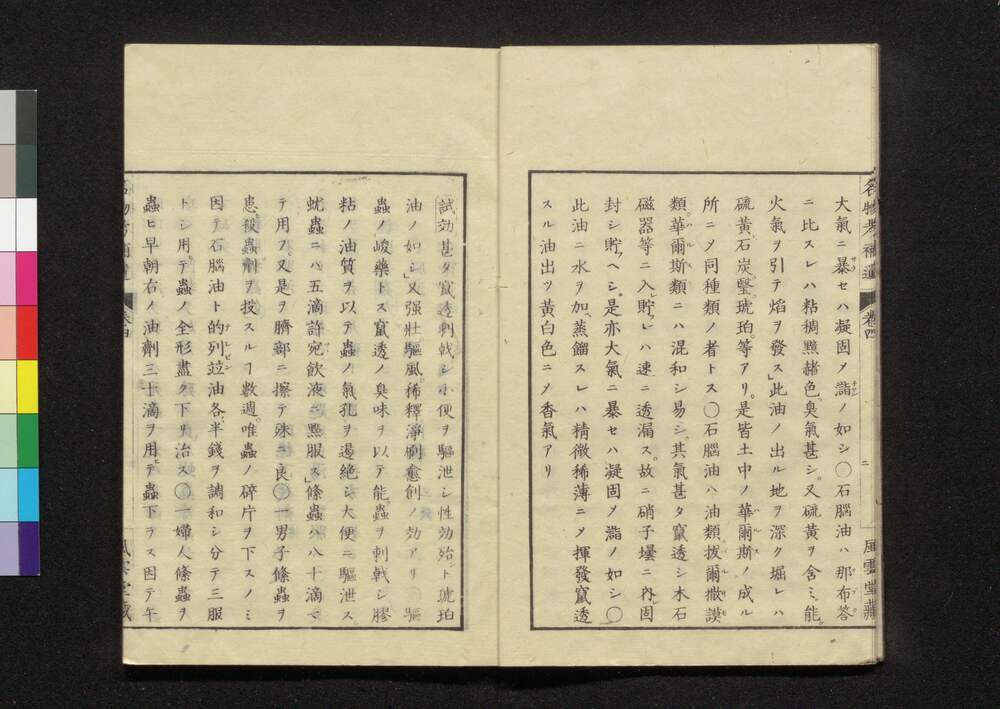 名物考補遺 卷四 二 風雲堂藏
大氣ニ暴セハ凝固メ謟ノ如シ〇石腦油ハ那布答
ニ比スレハ粘稠黯赭色臭氣甚シ又硫黄ヲ含ミ能
火氣ヲ引テ焰ヲ發ス此油ノ出ル地ヲ深ク堀レハ
硫黄石炭瑿琥珀等アリ是皆土中ノ華爾斯ノ成ル
所ニメ同種類ノ者トス〇石腦油ハ油類拔爾撒謨
類華爾斯類ニハ混和シ易シ其氣甚タ竄透シ木石
磁器等ニ入貯フレハ速ニ透漏ス故ニ硝子壜ニ內固
封シ貯フヘシ是亦大氣ニ暴セハ凝固メ謟ノ如シ〇
此油ニ水ヲ加蒸餾スレハ精微稀薄ニメ揮發竄透
スル油出ツ黄白色ニメ香氣アリ
試効甚タ竄透刺戟シ小便ヲ驅泄シ性効殆ト琥珀
油ノ如シ又强壯驅風稀釋淨刷愈創ノ効アリ〇驅
蟲ノ峻藥トス竄透ノ臭味ヲ以テ能蟲ヲ刺戟シ膠
粘ノ油質ヲ以テ蟲ノ氣孔ヲ遏絶シ大便ニ驅泄ス
蚘蟲ニハ五滴許宛飲液ニ點服ス條蟲ハ八十滴マ
テ用フ又是ヲ臍部ニ擦テ殊ニ良〇一男子條蟲ヲ
患殺蟲劑ヲ投スルヿ數週唯蟲ノ碎片ヲ下スノミ
因テ石腦油ト的列竝油各半錢ヲ調和シ分テ三服
トシ用テ蟲ノ全形盡ク下リ治ス〇一婦人條蟲ヲ
蟲ヒ早朝右ノ油劑三十滴ヲ用テ蟲下ラス因テ午